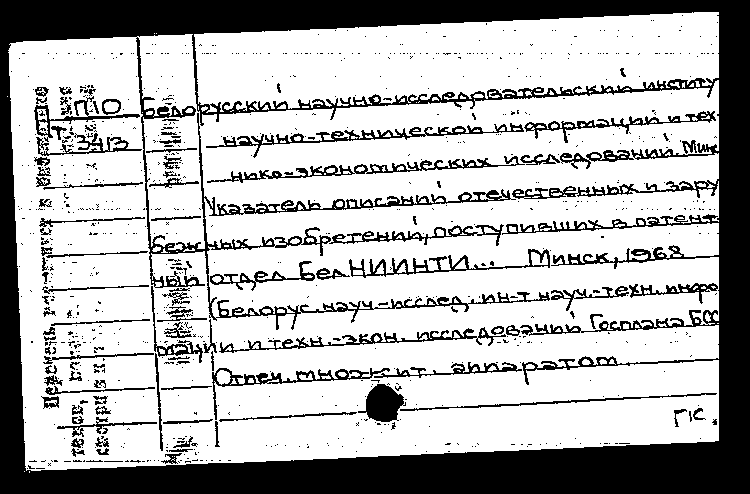 П10 Белорусский научно-исследовательский институ
научно-технической информации и тех-
3413
нико-экономических исследований. Минск
Указатель описаний отечественных и зару
бежных изобретений, поступивших в патент-
ный отдел БелНИИНТИ... Минск, 1968
(Белорус. науч.-исслед. ин-т науч.-техн. инфо
мации и техн.-экон. исследований Госплана БСС
Отпеч. множит. аппаратом
ГС.